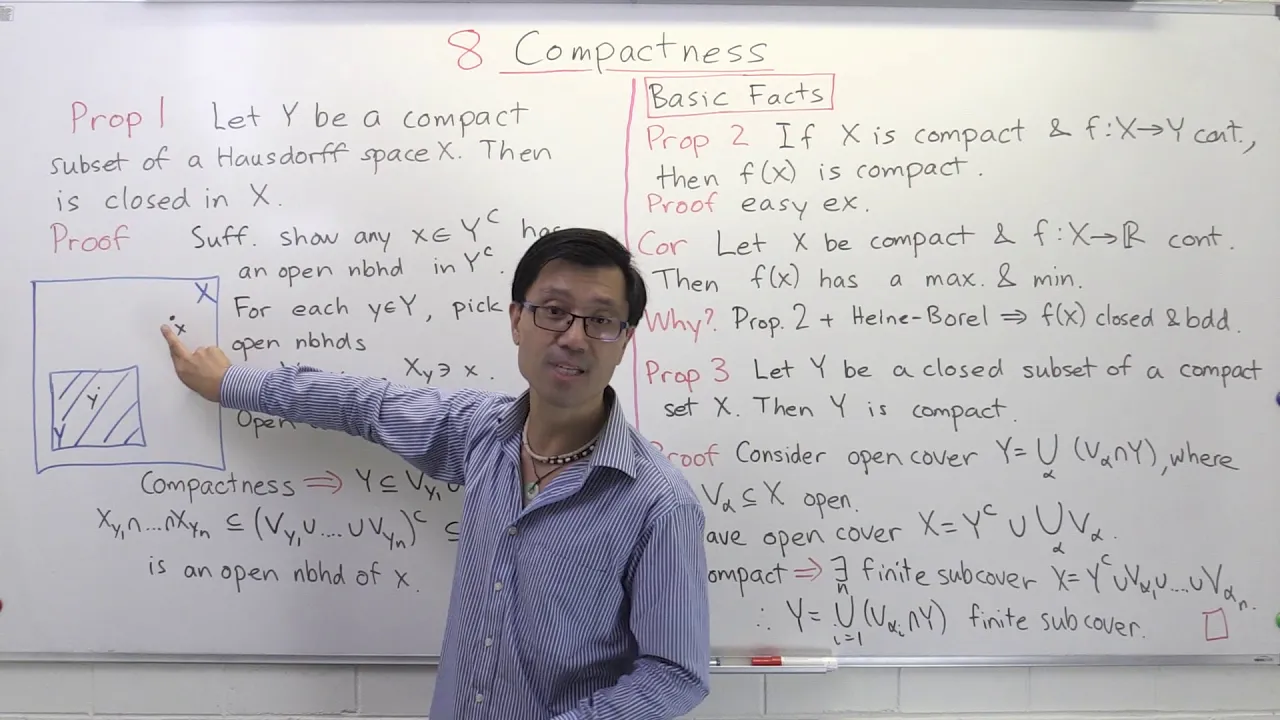 8 Compactness
Prop 1 Let Y be a compact
subset of a Hausdorff space X. Then
is closed in X.
Proof Suff. show any x∈Y^C has
an open nbhd in Y^C.
For each y∈Y, pick
open nbhds
X_y ∋ x.
Open
X
x
y
Y
Compactness ⇒ Y ⊆ V_y₁ ∪
X_y₁∩...∩X_yn ⊆ (V_y₁∪....∪V_yn)^C ⊆
is an open nbhd of x.
Basic Facts
Prop 2 If X is compact & f:X→Y cont.,
then f(x) is compact.
Proof easy ex.
Cor Let X be compact & f:X→ℝ cont.
Then f(x) has a max. & min.
Why? Prop. 2 + Heine-Borel ⇒ f(x) closed & bdd.
Prop 3 Let Y be a closed subset of a compact
set X. Then Y is compact.
Proof Consider open cover Y=⋃_α (V_α∩Y), where
V_α ⊆ X open.
open cover X=Y^C ∪ ⋃_α V_α.
⇒ ∃ finite subcover X=Y^C∪V_α₁∪....∪V_αn.
∴ Y=⋃_{i=1}^n (V_αi∩Y) finite subcover. □